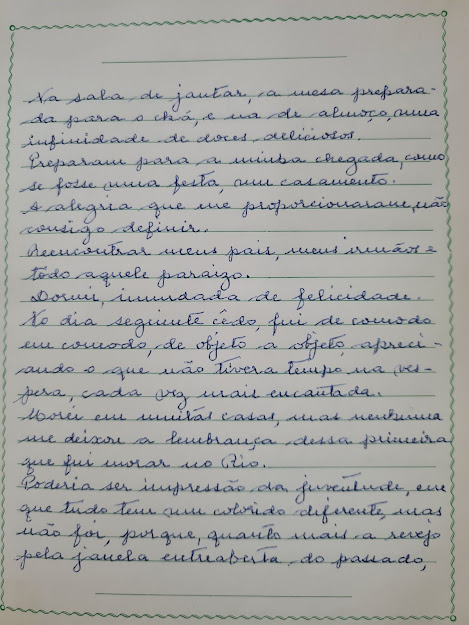 Na sala de jantar, a mesa prepara-
da para o chá, e na de almoço, uma
infinidade de doces deliciosos.
Preparam para a minha chegada, como
se fosse uma festa, um casamento.
A alegria que me proporcionaram, não
consigo definir.
Reencontrar meus pais, meus irmãos e
todo aquele paraizo.
Dormi, inundada de felicidade.
No dia seguinte cêdo, fui de comodo
em comodo, de objeto a objeto, apreci-
ando o que não tivera tempo na ves-
pera, cada vez mais encantada.
Morei em muitas casas, mas nenhuma
me deixou a lembrança dessa primeira
que fui morar no Rio.
Poderia ser impressão da juventude, em
que tudo tem um colorido diferente, mas
não foi, porque, quanto mais a revejo
pela janela entreaberta do passado,